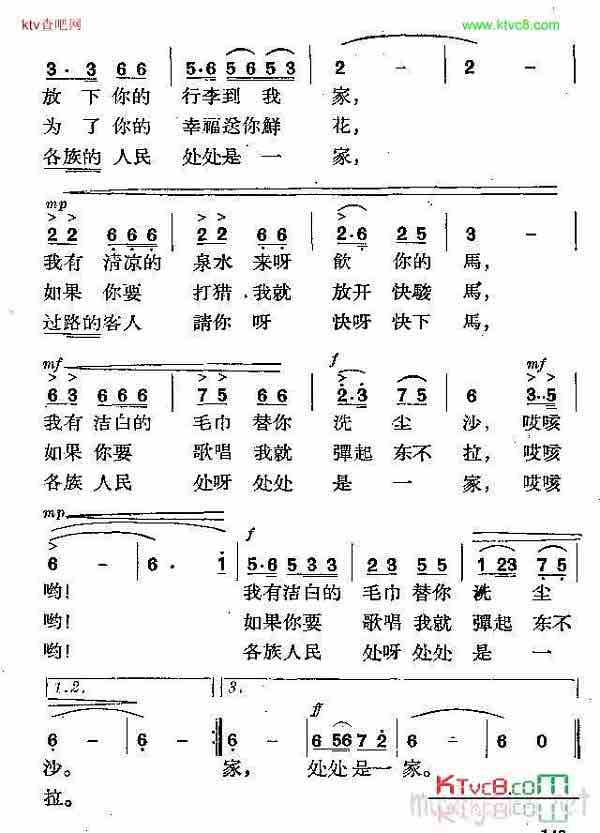 ktv查吧网 www.ktvc8.com
3·3 66 5·6 65 653 2 - 2 -
放下你的 行李到我 家，
为了你的 幸福送你鮮 花，
各族的人民 处处是一 家，
mp
22 666 22 66 2·6 25 3 -
我有清凉的 泉水来呀 飲 你的馬，
如果你要 打猎我就 放开快駿馬，
过路的客人 請你呀 快呀快下馬，
mf f mf
63 666 75 66 2·3 75 6 3··5
我有洁白的 毛巾替你 洗 尘 沙，哎咳
如果你要 歌唱我就 彈起东不 拉，哎咳
各族人民 处呀处处 是 一 家，哎咳
mp f
6 - 6· 1 5·6 533 23 55 123 75
哟！ 我有洁白的 毛巾替你 洗 尘
哟！ 如果你要 歌唱我就 彈起东不
哟！ 各族人民 处呀处处 是 一
1.2. 3.
ff
6 - 6 - 6 - 6 56 72 6 - 6 0
沙。 家， 处处是一家。
拉。
KTvc8.com